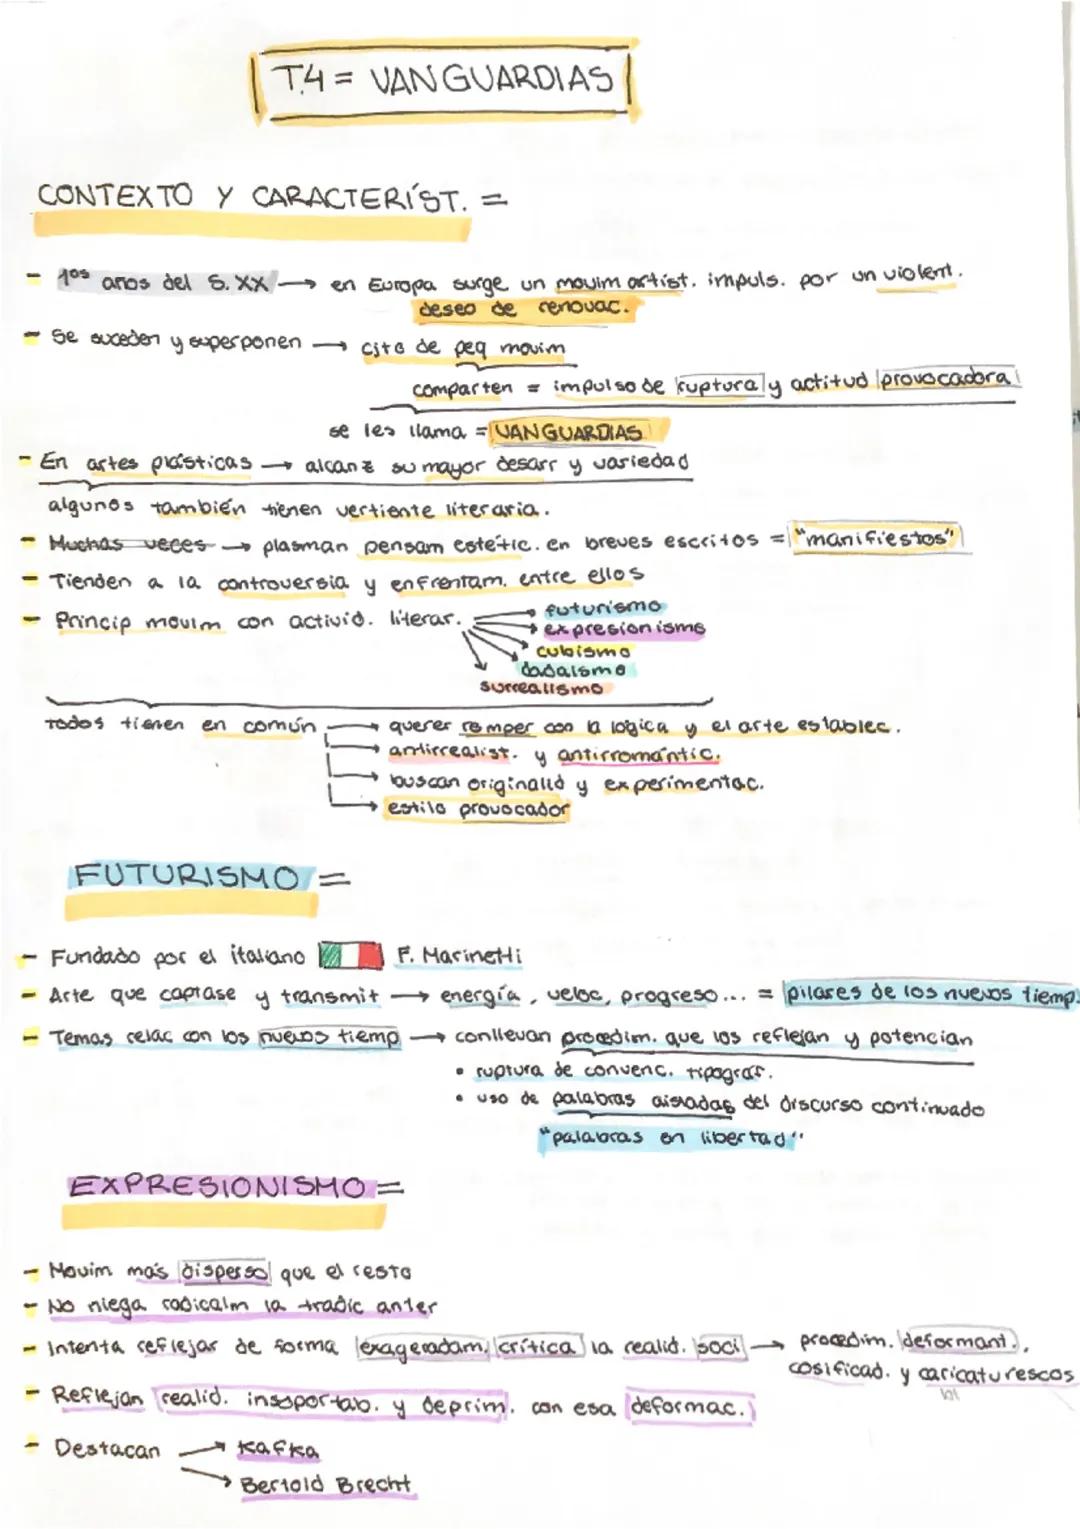 T.4 = VANGUARDIAS
CONTEXTO Y CARACTERÍST. =
- 1os años del S. XX → en Europa surge un movim artíst. impuls. por un violent.
deseo de renovac.
- Se suceden y superponen → cjto de peq movim
comparten = impulso de ruptura y actitud provocadora
se les llama = VANGUARDIAS
- En artes plásticas → alcanz su mayor desarr y variedad
algunos también tienen vertiente literaria.
- Muchas veces → plasman pensam estétic. en breves escritos = "manifiestos"
- Tienden a la controversia y enfrentam. entre ellos
- Princip movim con activid. literar. → futurismo
→ expresionismo
→ cubismo
→ dadaísmo
→ surrealismo
Todos tienen en común → querer romper con la lógica y el arte establec.
→ antirrealist. y antirromántic.
→ buscan originalid y experimentac.
→ estilo provocador
FUTURISMO =
- Fundado por el italiano F. Marinetti
- Arte que captase y transmit → energía, veloc, progreso... = pilares de los nuevos tiemp.
- Temas relac con los nuevos tiemp → conllevan procedim. que los reflejan y potencian
• ruptura de convenc. tipográf.
• uso de palabras aisladas del discurso continuado
"palabras en libertad"
EXPRESIONISMO =
- Movim más disperso que el resto
- No niega radicalm la tradic anter
- Intenta reflejar de forma exageradam. crítica la realid. soci → procedim. deformant.,
cosificad. y caricaturescos
- Reflejan realid. insoportab. y deprim. con esa deformac.
- Destacan → Kafka
→ Bertold Brecht